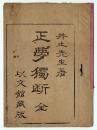 井上先生著
正夢獨断 全
以文館蔵版